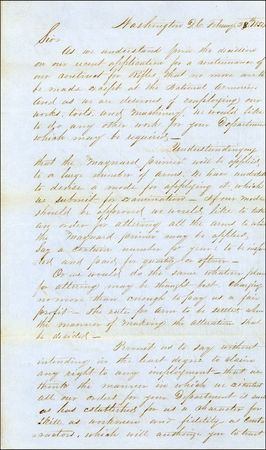 Washington D.C. February 28
Sir
As we understand from the decision
on our recent application for a continuance of
our contract for Rifles that no more are to
be made except at the National Armories
and as we are desirous of employing our
works, tools, and machinery, we would like
to do any other work for your Department
which may be required. —
Understanding
that the "Maynard primer" will be applied
to a large number of arms. We have endeavored
to devise a mode for applying it, which
we submit for examination — If our mode
should be approved we would like to take
an order for altering all the arms to which
the Maynard primer may be applied
for a certain number for year; to be inspected
and paid for monthly or often —
Or we would do the same whatever plan
for altering may be thought best. Charging
no more than enough to pay us a fair
profit — the rate for arm to be settled when
the manner of making the alteration shall
be decided —
Permit us to say without
intending in the least degree to claim
any right to any employment — that we
think the manner in which we executed
all our orders for your Department is such
as has established for us a character for
skill as workmen and fidelity as Contractors,
which will authorize you to trust